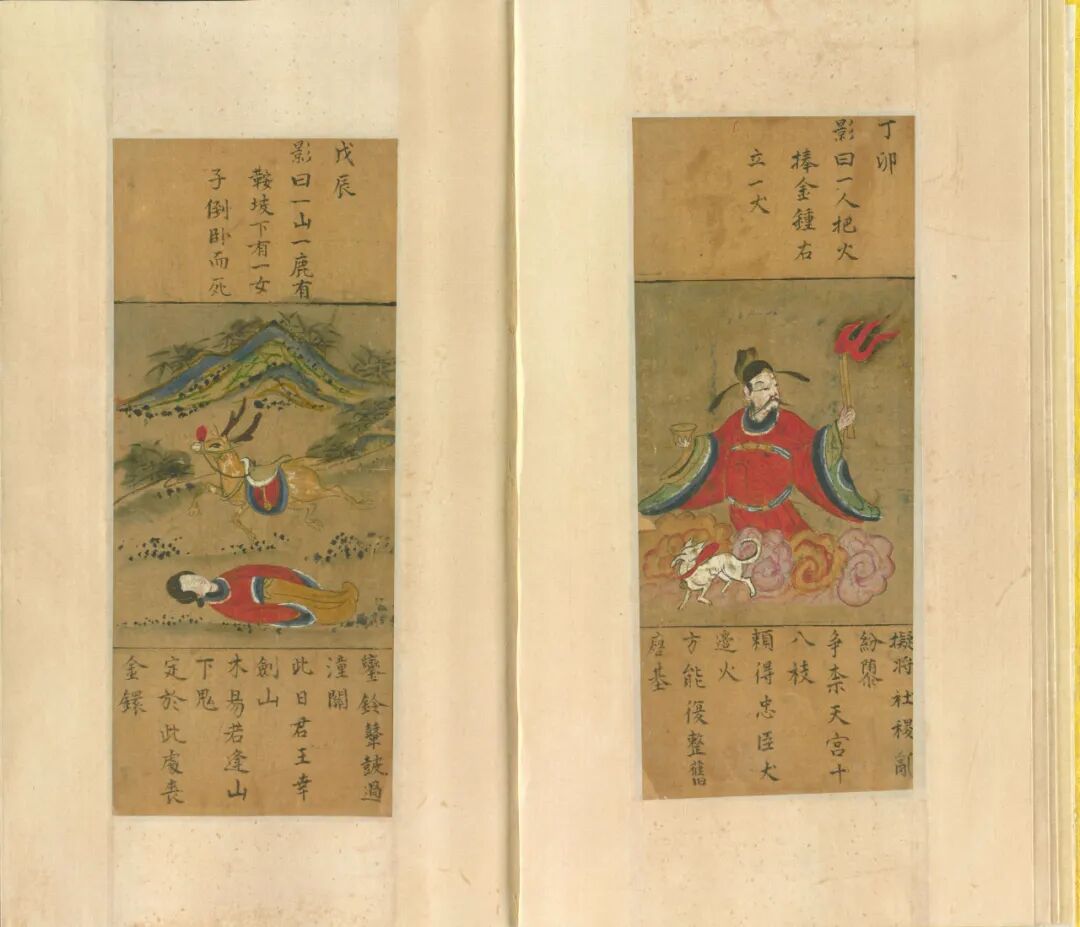 丁卯
影曰一人把火
捧金鍾右
立一犬
擬將社稷亂
紛藜
争柰天宫十
八枝
頼得忠臣犬
邉火
方能復整舊
唐基
戊辰
影曰一山一鹿有
鞍坡下有一女
子倒卧而死
鑾鈴鼙皷過
潼關
此日君王幸
劍山
木易若逢山
下鬼
定於此處喪
金鐶